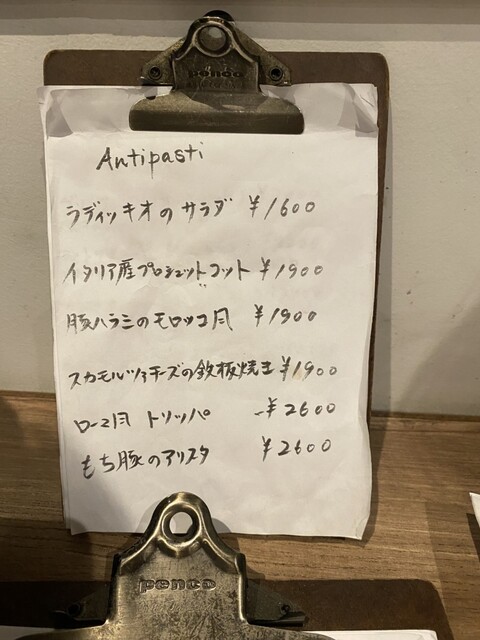 penco
Antipasti
ラディッキオのサラダ ¥1600
イタリア産プロシュットコット ¥1900
豚ハラミのモロッコ風 ¥1900
スカモルツァチーズの鉄板焼き ¥1900
ローマ風 トリッパ -¥2600
もち豚のアリスタ ¥2600
penco